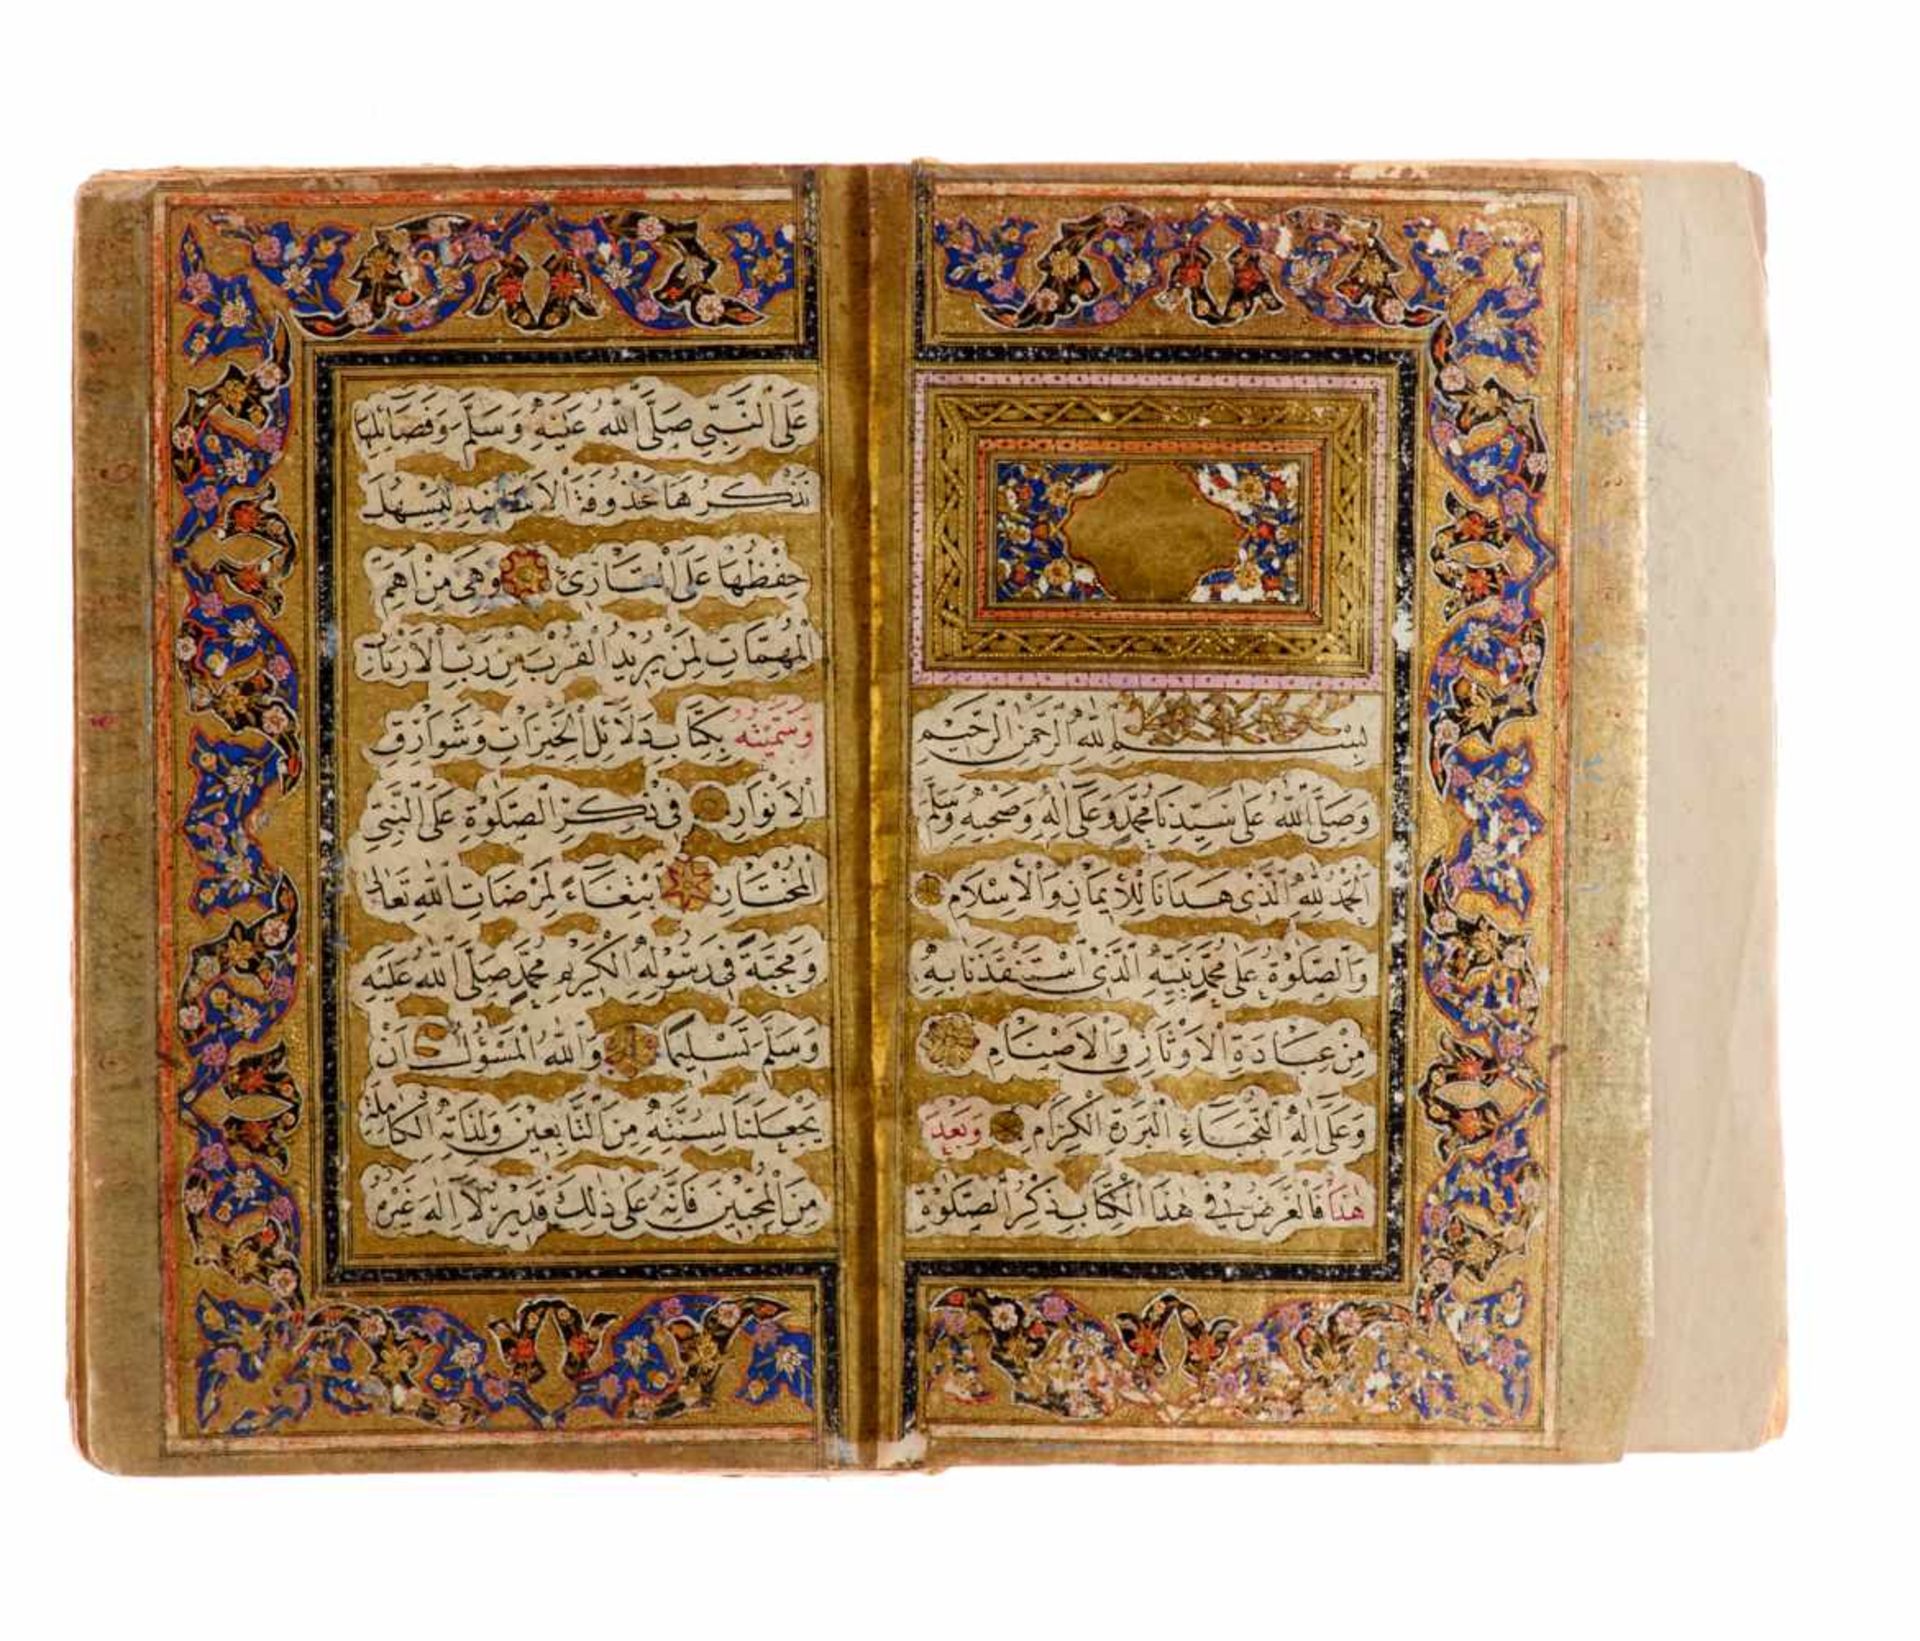 بِسْمِ اللهِ الرَّحْمٰنِ الرَّحِيْمِ
وَصَلَّى اللهُ عَلٰى سَيِّدِنَا مُحَمَّدٍ وَعَلٰى اٰلِهِ وَصَحْبِهِ وَسَلَّمَ
اَلْحَمْدُ لِلهِ الَّذِى هَدَانَا لِلْاِيمَانِ وَالْاِسْلَامِ
وَالصَّلٰوةُ عَلٰى مُحَمَّدٍ نَبِيِّهِ الَّذِى اسْتَنْقَذَنَا بِهِ
مِنْ عِبَادَةِ الْاَوْثَانِ وَالْاَصْنَامِ
وَعَلٰى اٰلِهِ النُّجَبَاءِ الْبَرَرَةِ الْكِرَامِ وَبَعْدَ
هٰذَا فَالْغَرَضُ فِى هٰذَا الْكِتَابِ ذِكْرُ الصَّلٰوةِ
عَلَى النَّبِيِّ صَلَّى اللهُ عَلَيْهِ وَسَلَّمَ وَفَضَائِلِهَا
نَذْكُرُهَا مَحْذُوفَةَ الْاَسَانِيدِ لِيَسْهُلَ
حِفْظُهَا عَلَى الْقَارِئِ وَهِيَ مِنْ اَهَمِّ
الْمُهِمَّاتِ لِمَنْ يُرِيدُ الْقُرْبَ مِنْ رَبِّ الْاَرْبَابِ
وَسَمَّيْتُهُ بِكِتَابِ دَلَائِلِ الْخَيْرَاتِ وَشَوَارِقِ
الْاَنْوَارِ فِى ذِكْرِ الصَّلٰوةِ عَلَى النَّبِيِّ
الْمُخْتَارِ اِبْتِغَاءً لِمَرْضَاتِ اللهِ تَعَالٰى
وَمَحَبَّةً فِى رَسُولِهِ الْكَرِيمِ مُحَمَّدٍ صَلَّى اللهُ عَلَيْهِ
وَسَلَّمَ تَسْلِيمًا وَاللهُ الْمَسْؤُلُ اَنْ
يَجْعَلَنَا لِسُنَّتِهِ مِنَ التَّابِعِينَ وَلِذَاتِهِ الْكَامِلَةِ
مِنَ الْمُحِبِّينَ فَاِنَّهُ عَلٰى ذٰلِكَ قَدِيرٌ لَا اِلٰهَ غَيْرُهُ